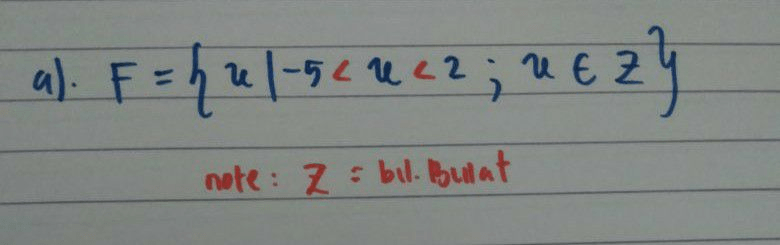 a). F = { x | -5 < x < 2 ; x ∈ Z }
note: Z = bil. Bulat